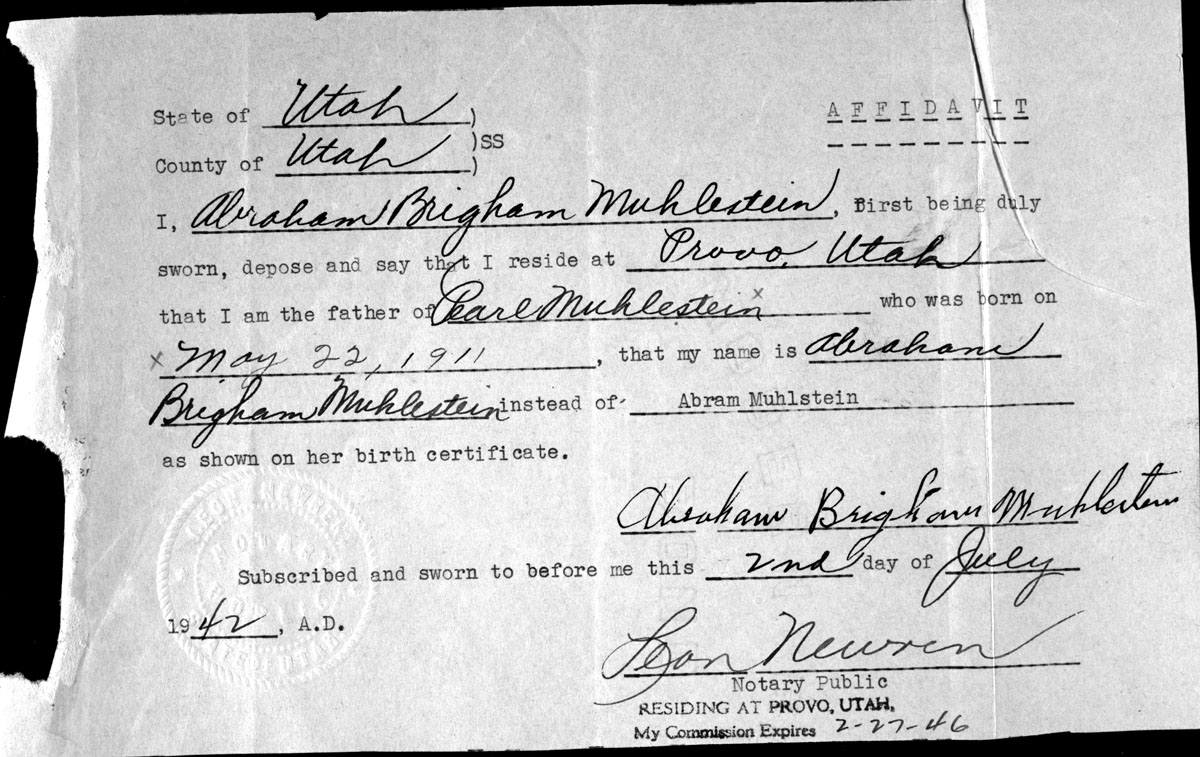 AFFIDAVIT
State of Utah )
)SS
County of Utah )
I, Abraham Brigham Muhlestein, First being duly
sworn, depose and say that I reside at Provo, Utah
that I am the father of Pearl Muhlestein x who was born on
x May 22, 1911, that my name is Abraham
Brigham Muhlestein instead of Abram Muhlstein
as shown on her birth certificate.
Abraham Brigham Muhlestein
Subscribed and sworn to before me this 2nd day of July
1942, A.D.
Leon Newren
Notary Public
RESIDING AT PROVO, UTAH.
My Commission Expires 2-27-46